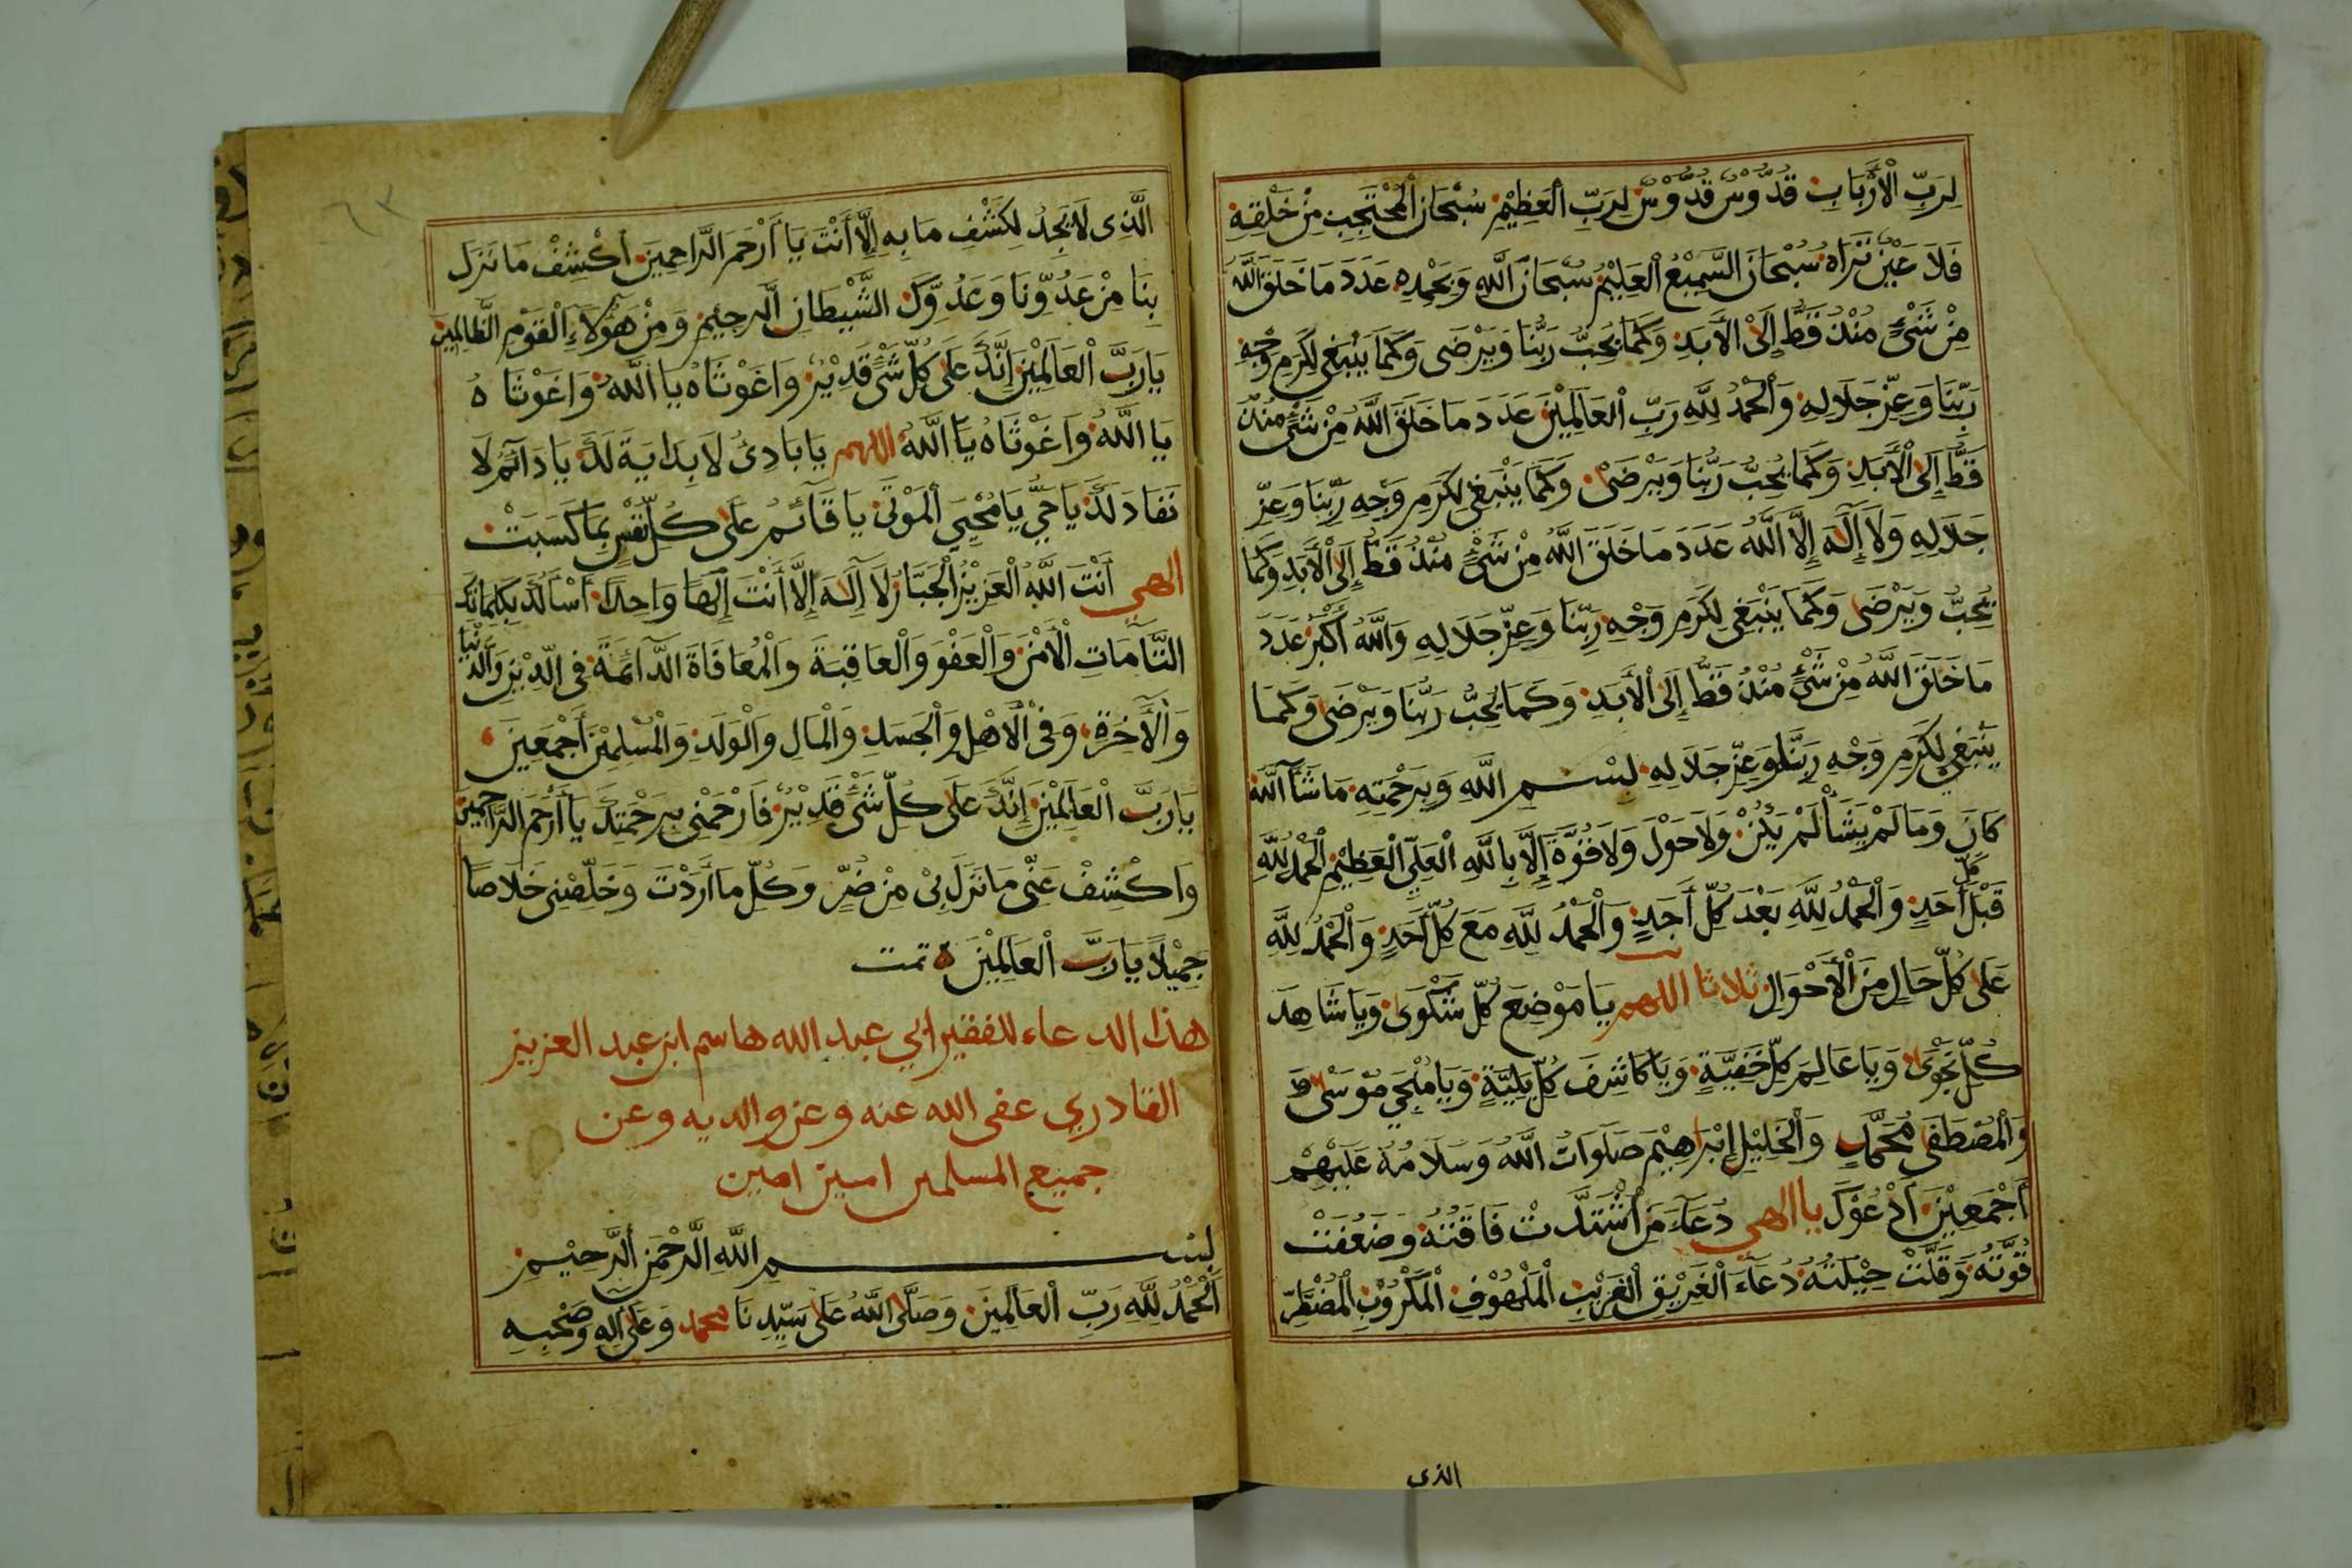 لِرَبِّ الْأَرْبَابِ قُدُّوْسٌ قُدُّوْسٌ لِرَبِّ الْعَظِيْمِ سُبْحَانَ الْمُحْتَجِبِ مِنْ خَلْقِهِ
فَلَا عَيْنٌ تَرَاهُ سُبْحَانَ السَّمِيْعُ الْعَلِيْمُ سُبْحَانَ اللَّهِ وَبِحَمْدِهِ عَدَدَ مَا خَلَقَ اللَّهُ
مِنْ شَيْءٍ مُنْذُ قَطُّ إِلَى الْأَبَدِ وَكَمَا يُحِبُّ رَبُّنَا وَيَرْضَى وَكَمَا يَنْبَغِي لِكَرَمِ وَجْهِ
رَبِّنَا وَعِزِّ جَلَالِهِ وَالْحَمْدُ لِلَّهِ رَبِّ الْعَالَمِيْنَ عَدَدَ مَا خَلَقَ اللَّهُ مِنْ شَيْءٍ مُنْذُ
قَطُّ إِلَى الْأَبَدِ وَكَمَا يُحِبُّ رَبُّنَا وَيَرْضَى وَكَمَا يَنْبَغِي لِكَرَمِ وَجْهِ رَبِّنَا وَعِزِّ
جَلَالِهِ وَلَا إِلَٰهَ إِلَّا اللَّهُ عَدَدَ مَا خَلَقَ اللَّهُ مِنْ شَيْءٍ مُنْذُ قَطُّ إِلَى الْأَبَدِ وَكَمَا
يُحِبُّ وَيَرْضَى وَكَمَا يَنْبَغِي لِكَرَمِ وَجْهِ رَبِّنَا وَعِزِّ جَلَالِهِ وَاللَّهُ أَكْبَرُ عَدَدَ
مَا خَلَقَ اللَّهُ مِنْ شَيْءٍ مُنْذُ قَطُّ إِلَى الْأَبَدِ وَكَمَا يُحِبُّ رَبُّنَا وَيَرْضَى وَكَمَا
يَنْبَغِي لِكَرَمِ وَجْهِ رَبِّنَا وَعِزِّ جَلَالِهِ بِسْمِ اللَّهِ وَبِرَحْمَتِهِ مَا شَآءَ اللَّهُ
كَانَ وَمَا لَمْ يَشَأْ لَمْ يَكُنْ وَلَا حَوْلَ وَلَا قُوَّةَ إِلَّا بِاللَّهِ الْعَلِيِّ الْعَظِيْمِ الْحَمْدُ لِلَّهِ
قَبْلَ كُلِّ أَحَدٍ وَالْحَمْدُ لِلَّهِ بَعْدَ كُلِّ أَحَدٍ وَالْحَمْدُ لِلَّهِ مَعَ كُلِّ أَحَدٍ وَالْحَمْدُ لِلَّهِ
عَلَى كُلِّ حَالٍ مِنَ الْأَحْوَالِ ثلاثا اللهم يَا مَوْضِعَ كُلِّ شَكْوَى وَيَا شَاهِدَ
كُلِّ نَجْوَى وَيَا عَالِمَ كُلِّ خَفِيَّةٍ وَيَا كَاشِفَ كُلِّ بَلِيَّةٍ وَيَا مُنْجِي مُوْسَى
وَالْمُصْطَفَى مُحَمَّدٍ وَالْخَلِيْلِ إِبْرَاهِيْمَ صَلَوَاتُ اللَّهِ وَسَلَامُهُ عَلَيْهِمْ
أَجْمَعِيْنَ أَدْعُوْكَ يا الهي دُعَآءَ مَنْ اشْتَدَّتْ فَاقَتُهُ وَضَعُفَتْ
قُوَّتُهُ وَقَلَّتْ حِيْلَتُهُ دُعَآءَ الْغَرِيْقِ الْغَرِيْبِ الْمَلْهُوْفِ الْمَكْرُوْبِ الْمُضْطَرِّ
الذى
الَّذِى لَا يَجِدُ لِكَشْفِ مَا بِهِ إِلَّا أَنْتَ يَا أَرْحَمَ الرَّاحِمِيْنَ اَكْشِفْ مَا نَزَلَ
بِنَا مِنْ عَدُوِّنَا وَعَدُوِّكَ الشَّيْطَانِ الرَّجِيْمِ وَمِنْ هَؤُلَاءِ الْقَوْمِ الظَّالِمِيْنَ
يَا رَبَّ الْعَالَمِيْنَ إِنَّكَ عَلَى كُلِّ شَيْءٍ قَدِيْرٌ وَاغَوْثَاهُ يَا اللَّهُ وَاغَوْثَاهُ
يَا اللَّهُ وَاغَوْثَاهُ يَا اللَّهُ اللهم يَا بَادِئُ لَا بِدَايَةَ لَكَ يَا دَآئِمُ لَا
نَفَادَ لَكَ يَا حَيُّ يَا مُحْيِي الْمَوْتَى يَا قَآئِمُ عَلَى كُلِّ نَفْسٍ بِمَا كَسَبَتْ
الهي أَنْتَ اللَّهُ الْعَزِيْزُ الْجَبَّارُ لَا إِلَٰهَ إِلَّا أَنْتَ إِلَٰهًا وَاحِدًا أَسْأَلُكَ بِكَلِمَاتِكَ
التَّآمَّاتِ الْأَمْنَ وَالْعَفْوَ وَالْعَافِيَةَ وَالْمُعَافَاةَ الدَّائِمَةَ فِي الدِّيْنِ وَالدُّنْيَا
وَالْآخِرَةِ وَفِي الْأَهْلِ وَالْجَسَدِ وَالْمَالِ وَالْوَلَدِ وَالْمُسْلِمِيْنَ أَجْمَعِيْنَ
يَا رَبَّ الْعَالَمِيْنَ إِنَّكَ عَلَى كُلِّ شَيْءٍ قَدِيْرٌ فَارْحَمْنِي بِرَحْمَتِكَ يَا أَرْحَمَ الرَّاحِمِيْنَ
وَاكْشِفْ عَنِّي مَا نَزَلَ بِيْ مِنْ ضُرٍّ وَكُلِّ مَا أَرَدْتَ وَخَلِّصْنِي خَلَاصًا
جَمِيْلًا يَا رَبَّ الْعَالَمِيْنَ ه تمت
هذا الدعاء للفقير ابي عبد الله هاسم ابن عبد العزيز
القادري عفى الله عنه وعن والديه وعن
جميع المسلمين امين امين
بِسْمِ اللَّهِ الرَّحْمَنِ الرَّحِيْمِ
الْحَمْدُ لِلَّهِ رَبِّ الْعَالَمِيْنَ وَصَلَّى اللَّهُ عَلَى سَيِّدِنَا محمد وَعَلَى آلِهِ وَصَحْبِهِ